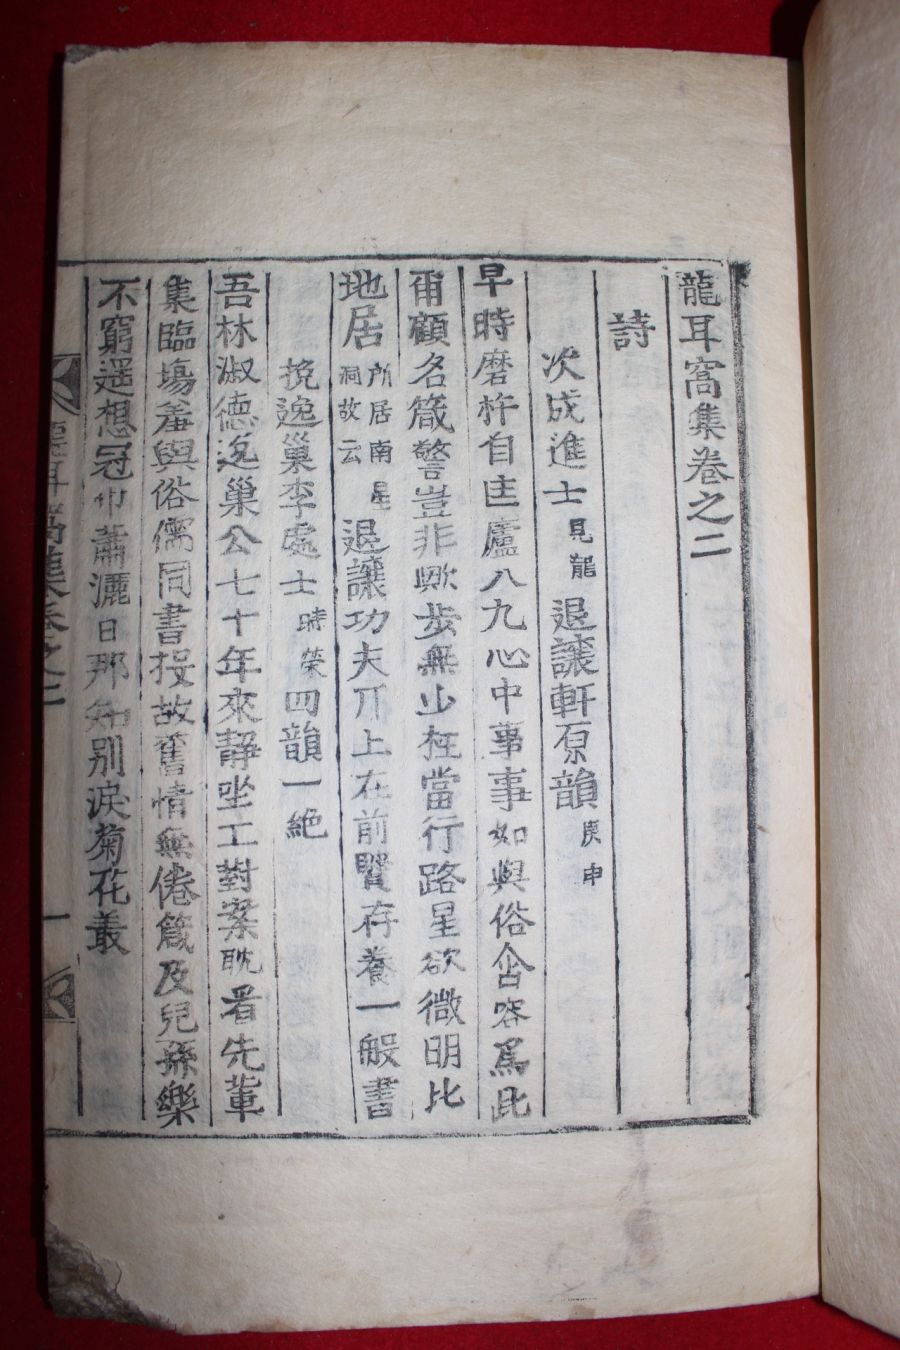 龍耳窩集卷之二
詩
次成進士見龍退讓軒原韻庚申
早時磨杵自匡廬八九心中事事如與俗含容爲此
甭顧名箴警豈非歟步無少枉當行路星欲微明比
地居所居南星洞故云退讓功夫丌上在前賢存養一般書
挽逸巢李處士時榮四韻一絶
吾林淑德逸巢公七十年來靜坐工對案耽看先輩
集臨場羞與俗儒同書投故舊情無倦箴及兒孫樂
不窮遥想冠巾蕭灑日那知別淚菊花叢
龍耳窩集卷之二 一